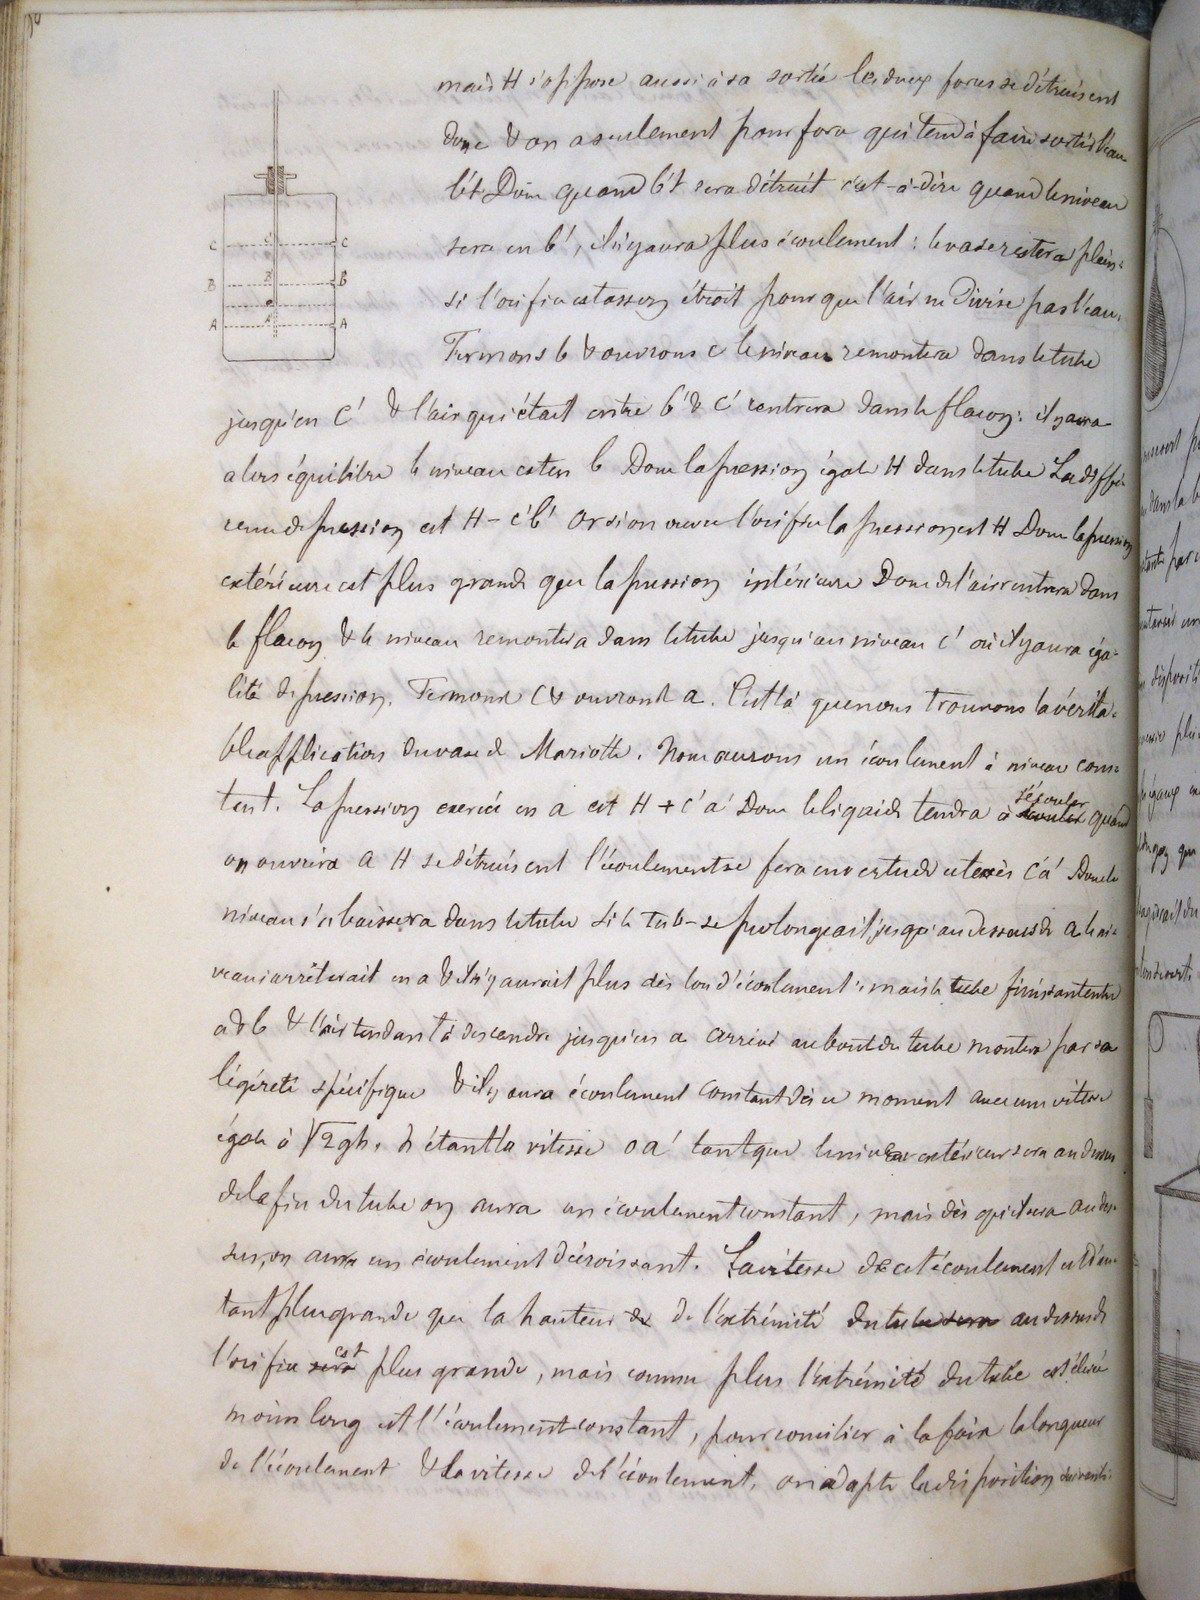 mais H s'oppose aussi à sa sortie les deux forces se détruisent
donc & on a seulement pour force qui tend à faire sortir l'eau
b't. Donc quand b't sera détruit c'est-à-dire quand le niveau
sera en b', il n'y aura plus écoulement : le vase restera plein
si l'orifice est assez étroit pour que l'air ne divise pas l'eau.
Fermons b & ouvrons c le niveau remontera dans le tube
C C' C
B B' B
A A' A
jusqu'en C' & l'air qui était entre b' & c' rentrera dans le flacon : il y aura
alors équilibre le niveau est en b Donc la pression égale H dans le tube La diffé
rence de pression est H - c'b' Or si on ouvre l'orifice la pression est H Donc la pression
extérieure est plus grande que la pression intérieure Donc de l'air rentrera dans
le flacon & le niveau remontera dans le tube jusqu'au niveau c' où il y aura éga-
lité de pression. Fermons C & ouvrons a. C'est là que nous trouvons la vérita-
ble application du vase de Mariotte. Nous aurons un écoulement à niveau cons-
tant. La pression exercée en a est H + c'a' Donc le liquide tendra à s'écouler quand
on ouvrira a H se détruisent l'écoulement se fera en vertu de cet excès c'a' Donc le
niveau s'abaissera dans le tube Si le tube se prolongeait jusqu'au dessous de a le ni-
veau s'arrêterait en a & il n'y aurait plus dès lors d'écoulement : mais le tube finissant entre
a & b & l'air tendant à descendre jusqu'en a arrivé au bout du tube montera par sa
légéreté spécifique & il y aura écoulement constant dès ce moment avec une vitesse
égale à √2gh. h étant la vitesse oa' tant que le niveau extérieur sera au dessus
de la fin du tube on aura un écoulement constant, mais dès qu'il sera au des-
sus, on aura un écoulement décroissant. La vitesse de cet écoulement est d'au-
tant plus grande que la hauteur de de l'extrémité du tube sera au dessus de
l'orifice est plus grande, mais comme plus l'extrémité du tube est élevée
moins long est l'écoulement constant, pour concilier à la fois la longueur
de l'écoulement & la vitesse de l'écoulement, on adopte la disposition suivante: